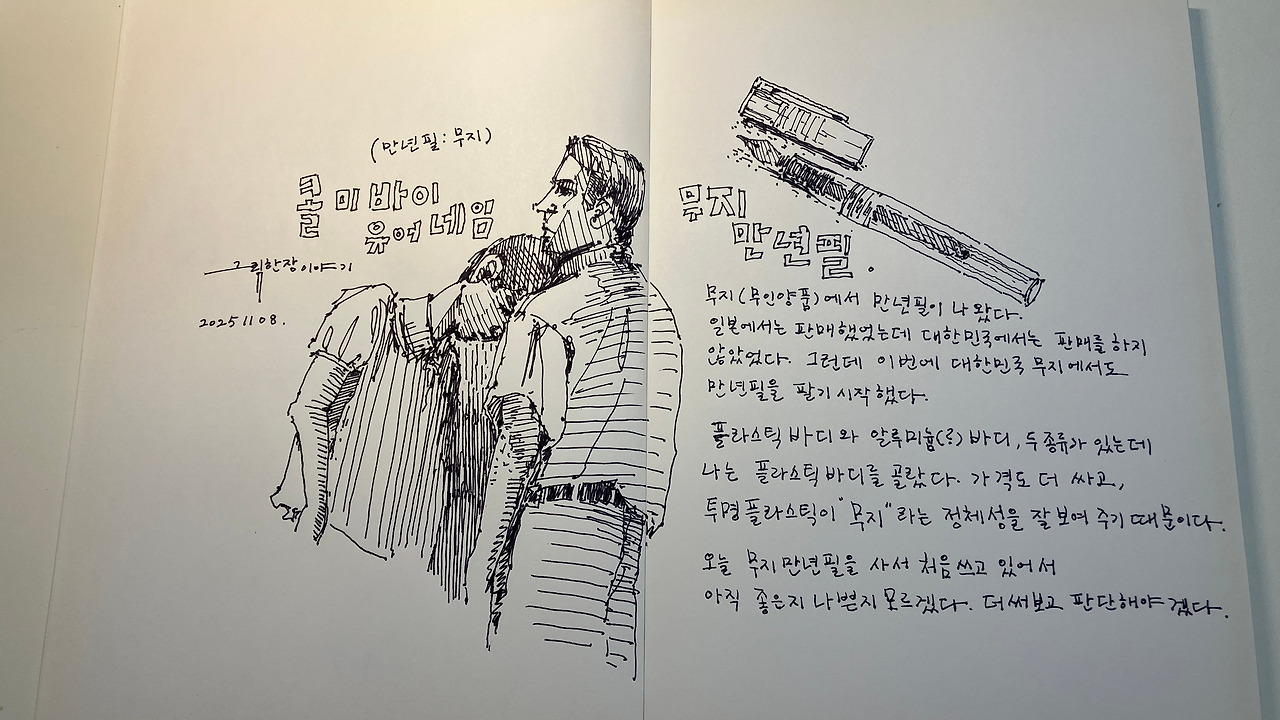 (만년필:무지)
콜 미 바이
유어 네임
그림한장이야기
2025 11 08.
무지
만년필.
무지(무인양품)에서 만년필이 나왔다.
일본에서는 판매했었는데 대한민국에서는 판매를 하지
않았었다. 그런데 이번에 대한민국 무지에서도
만년필을 팔기 시작했다.
플라스틱 바디와 알루미늄(?) 바디, 두종류가 있는데
나는 플라스틱 바디를 골랐다. 가격도 더 싸고,
투명플라스틱이 "무지"라는 정체성을 잘 보여 주기 때문이다.
오늘 무지만년필을 사서 처음 쓰고 있어서
아직 좋은지 나쁜지 모르겠다. 더 써보고 판단해야겠다.